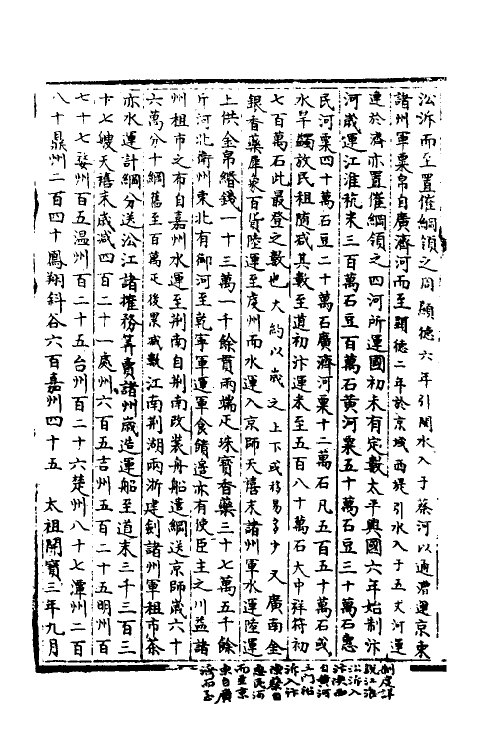 汴泝而上置催綱領之周顯德六年引閔水入于蔡河以通漕運京東
諸州軍粟帛自廣濟河而至顯德二年於京城西堤引水入于五丈河運
達於濟亦置催綱領之四河所運國初未有定數太平興國六年始制汴
河歲運江淮秔米三百萬石豆百萬石黃河粟五十萬石豆三十萬石惠
民河粟四十萬石豆二十萬石廣濟河粟十二萬石凡五百五十萬石或
水旱蠲放民租隨減其數至道初汴運米至五百八十萬石大中祥符初
七百萬石此最登之數也大約以歲之上下或移易多少又廣南金
銀香藥犀象百貨陸運至䖍州而水運入京師天禧末諸州軍水運陸運
上供金帛緡錢一十三萬一千餘貫兩端疋珠寶香藥三十七萬五千餘
斤河北衛州東北有御河至乾寧軍運軍食饋邊亦有使臣主之川益諸
州租市之布自嘉州水運至荆南自荆南改裝舟船遣綱送京師歲六十
六萬分十綱舊至百萬疋後累減數江南荆湖兩浙建劍諸州軍租市茶
亦水運計綱分送汴江諸搉務筭賣諸州歲造運船至道末三千三百三
十七艘天禧末歲減四百二十一處州六百五吉州五百二十五明州百
七十七婺州百五溫州百二十五台州百二十六楚州八十七潭州二百
八十鼎州二百四十鳳翔斜谷六百嘉州四十五　太祖開寶三年九月
制度詳
説江淮
汴泝入
汴陝西
自黄河
三門沿
泝入汴
陳蔡自
惠民河
而至京
東自廣
濟河至